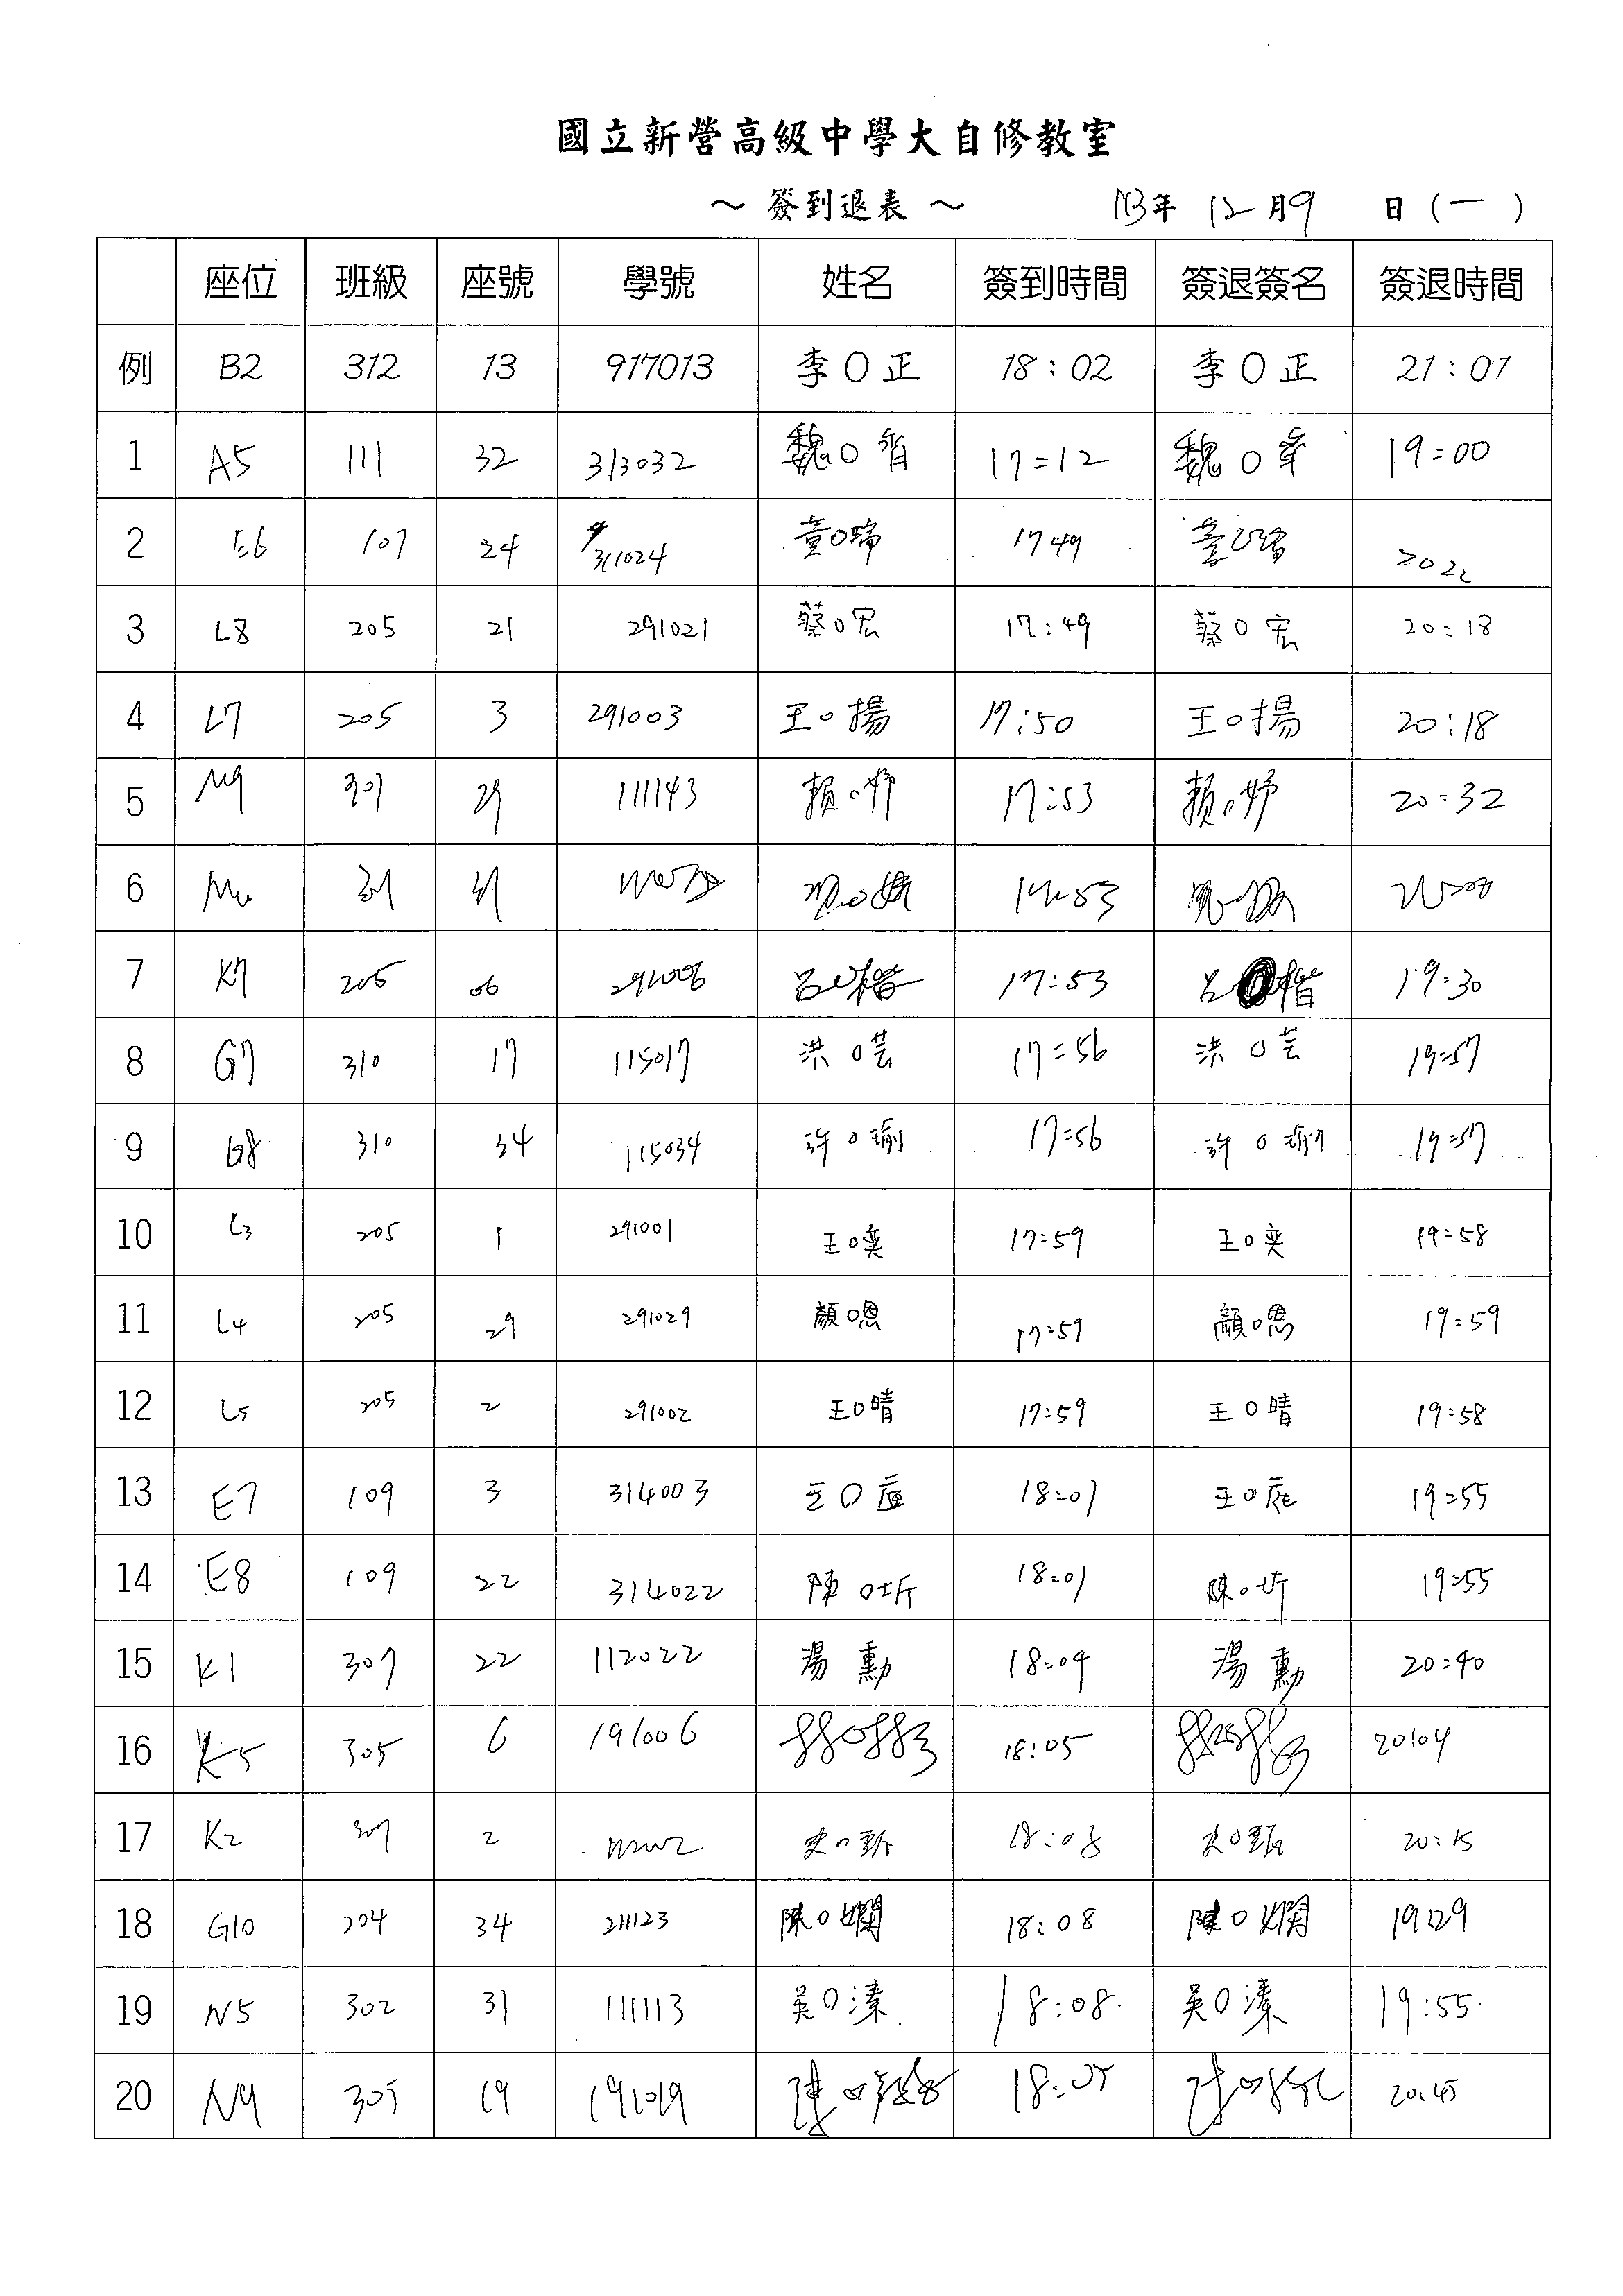 國立新營高級中學大自修教室
～ 簽到退表 ～ 113年 12月9 日(一)
座位 班級 座號 學號 姓名 簽到時間 簽退簽名 簽退時間
例 B2 312 13 917013 李O正 18:02 李O正 21:07
1 A5 111 32 313032 魏O 17:12 魏O 19:00
2 E6 107 24 311024 董O 1749 董O 2022
3 L8 205 21 291021 蔡O宏 17:49 蔡O宏 20:18
4 L7 205 3 291003 王O揚 17:50 王O揚 20:18
5 M9 301 29 111143 賴O妤 17:53 賴O妤 20:32
6 17:53
7 K7 205 06 291006 呂O楷 17:53 呂O楷 19:30
8 G7 310 17 115017 洪O芸 17:56 洪O芸 19:57
9 G8 310 34 115034 許O瑜 17:56 許O瑜 19:57
10 L3 205 1 291001 王O奕 17:59 王O奕 19:58
11 L4 205 29 291029 顏O恩 17:59 顏O恩 19:59
12 L5 205 2 291002 王O晴 17:59 王O晴 19:58
13 E7 109 3 314003 王O 18:01 王O 19:55
14 E8 109 22 314022 陳O圻 18:01 陳O圻 19:55
15 K1 307 22 112022 湯勳 18:04 湯勳 20:40
16 K5 305 6 191006 18:05 20:04
17 K2 307 2 史O 18:08 史O甄 20:15
18 G10 204 34 211123 陳O嫻 18:08 陳O嫻 19:29
19 N5 302 31 111113 吳O溱 18:08 吳O溱 19:55
20 N9 305 19 191019 20:45